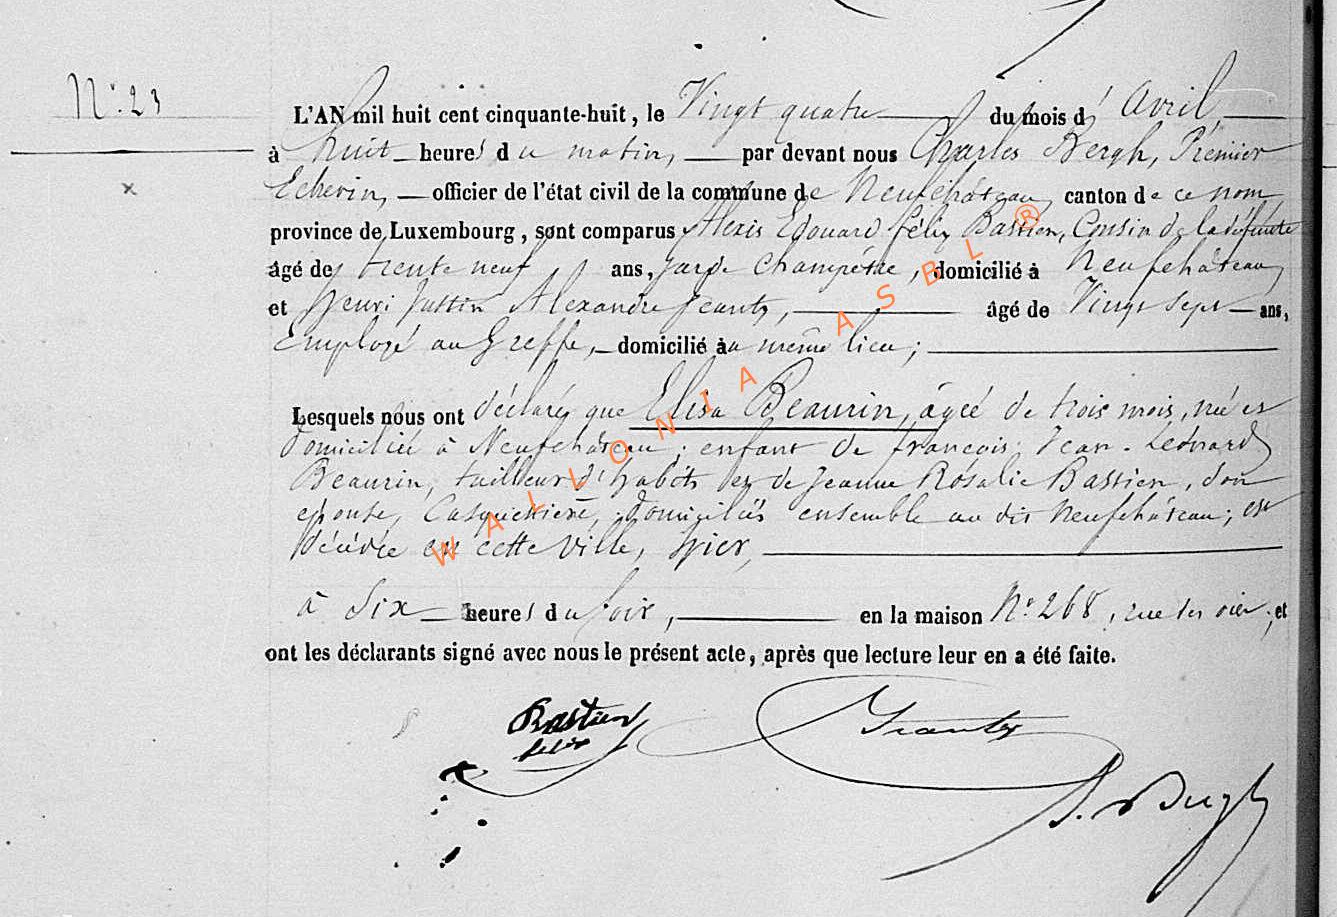 N° 23
L'AN mil huit cent cinquante-huit, le Vingt quatre du mois d'Avril,
à huit heures du matin, par devant nous Charles Bergh, Premier
Echevin, officier de l'état civil de la commune de Neufchâteau, canton de ce nom,
province de Luxembourg, sont comparus Alexis Edouard félix Bastien, Cousin de la défunte
âgé de trente neuf ans, garde Champêtre, domicilié à Neufchâteau,
et Henri Justin Alexandre Jeanty, âgé de Vingt Sept ans,
Employé au Greffe, domicilié au même lieu;
Lesquels nous ont déclaré que Elisa Beaurin, âgée de trois mois, née et
domiciliée à Neufchâteau, enfant de françois Jean-Léonard
Beaurin, tailleur d'habits et de Jeanne Rosalie Bastien, son
épouse, Casquettière, domiciliés ensemble au dit Neufchâteau; est
décédée en cette Ville, hier,
à Six heures du soir, en la maison N° 268, rue des; et
ont les déclarants signé avec nous le présent acte, après que lecture leur en a été faite.
Bastien
felix
Jeanty
Bergh
WALLONIA ASBL ®